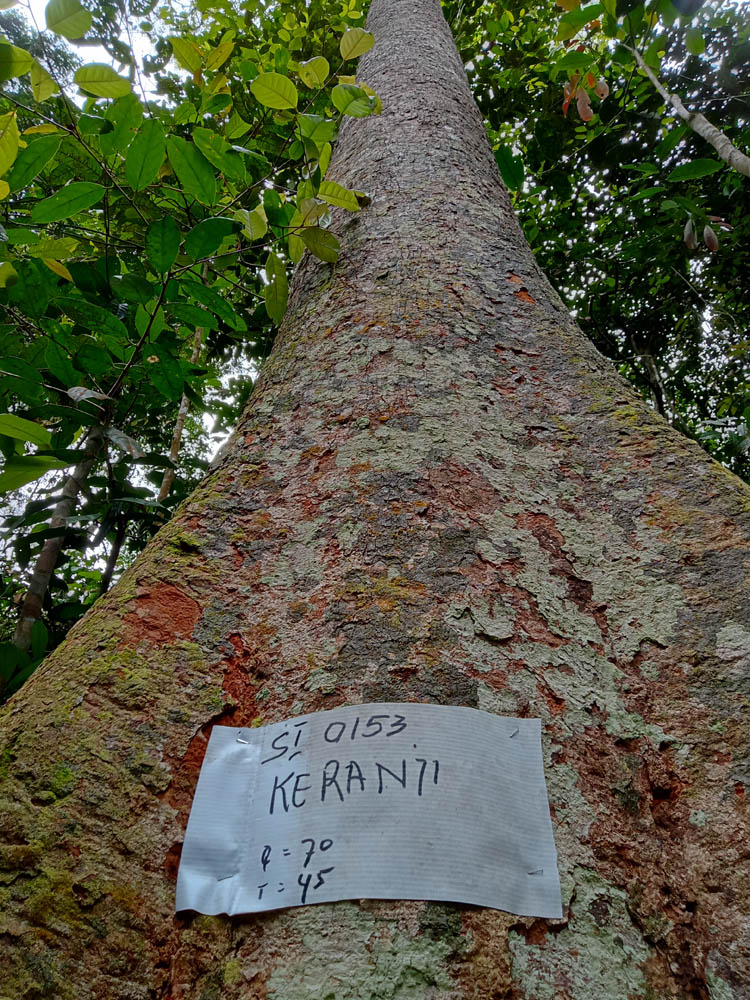 SI 0153
KERANJI
φ = 70
T = 45